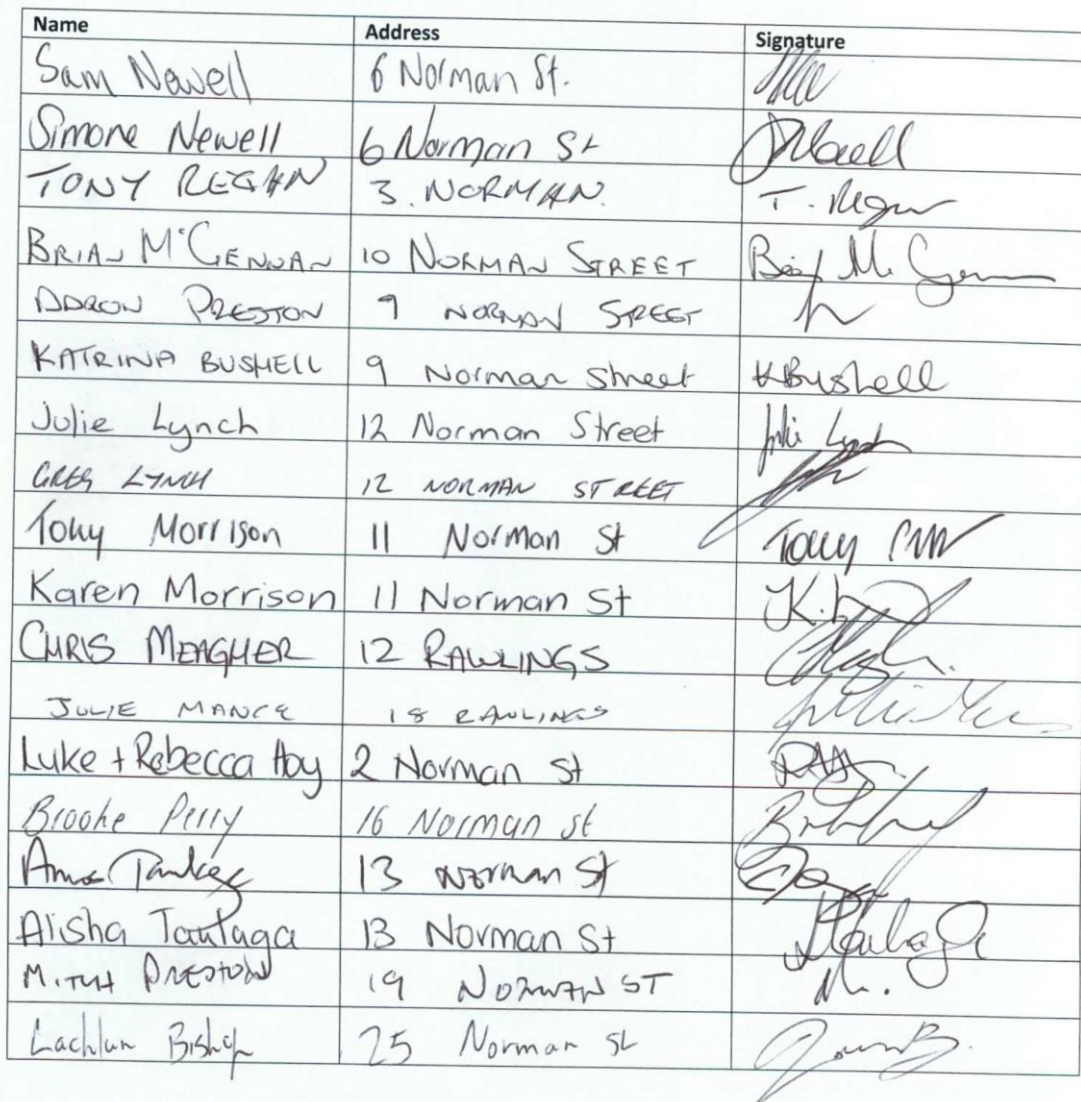 Name Address Signature
Sam Newell 6 Norman St.
Simone Newell 6 Norman St
TONY REGAN 3. NORMAN. T. Regan
BRIAN McGENNAN 10 NORMAN STREET
AARON PRESTON 9 NORMAN STREET
KATRINA BUSHELL 9 Norman Street KBushell
Julie Lynch 12 Norman Street Julie Lynch
GREG LYNCH 12 NORMAN STREET
Tony Morrison 11 Norman St Tony
Karen Morrison 11 Norman St
CHRIS MEAGHER 12 RAWLINGS
JULIE MANCE 18 RAWLINGS
Luke + Rebecca Hoy 2 Norman St
Brooke Perry 16 Norman St
13 Norman St
Alisha Tautaga 13 Norman St
MITCH PRESTON 19 NORMAN ST
Lachlan Bishop 25 Norman St